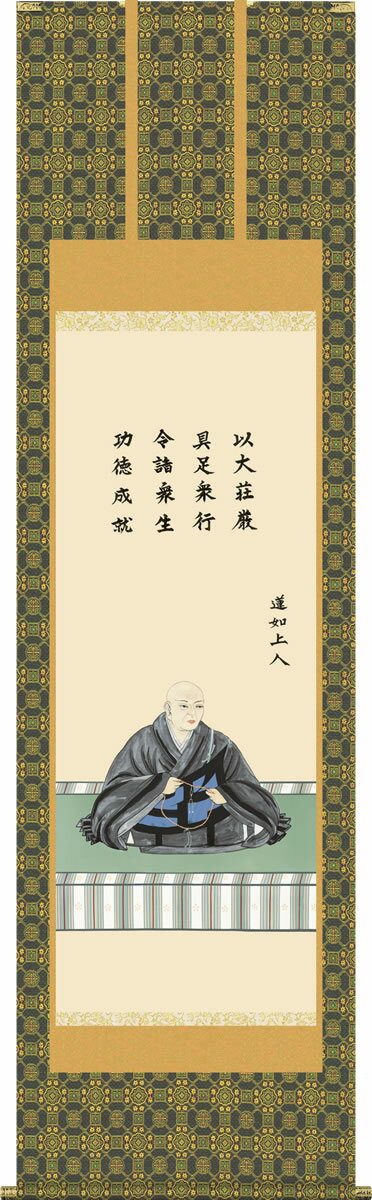 蓮如上人
以大荘厳
具足衆行
令諸衆生
功徳成就